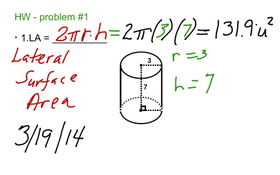 HW - problem #1
• 1. LA = 2πrh = 2π(3)(7) = 131.9 u²
Lateral
Surface
Area
r = 3
h = 7
3
7
3/19/14